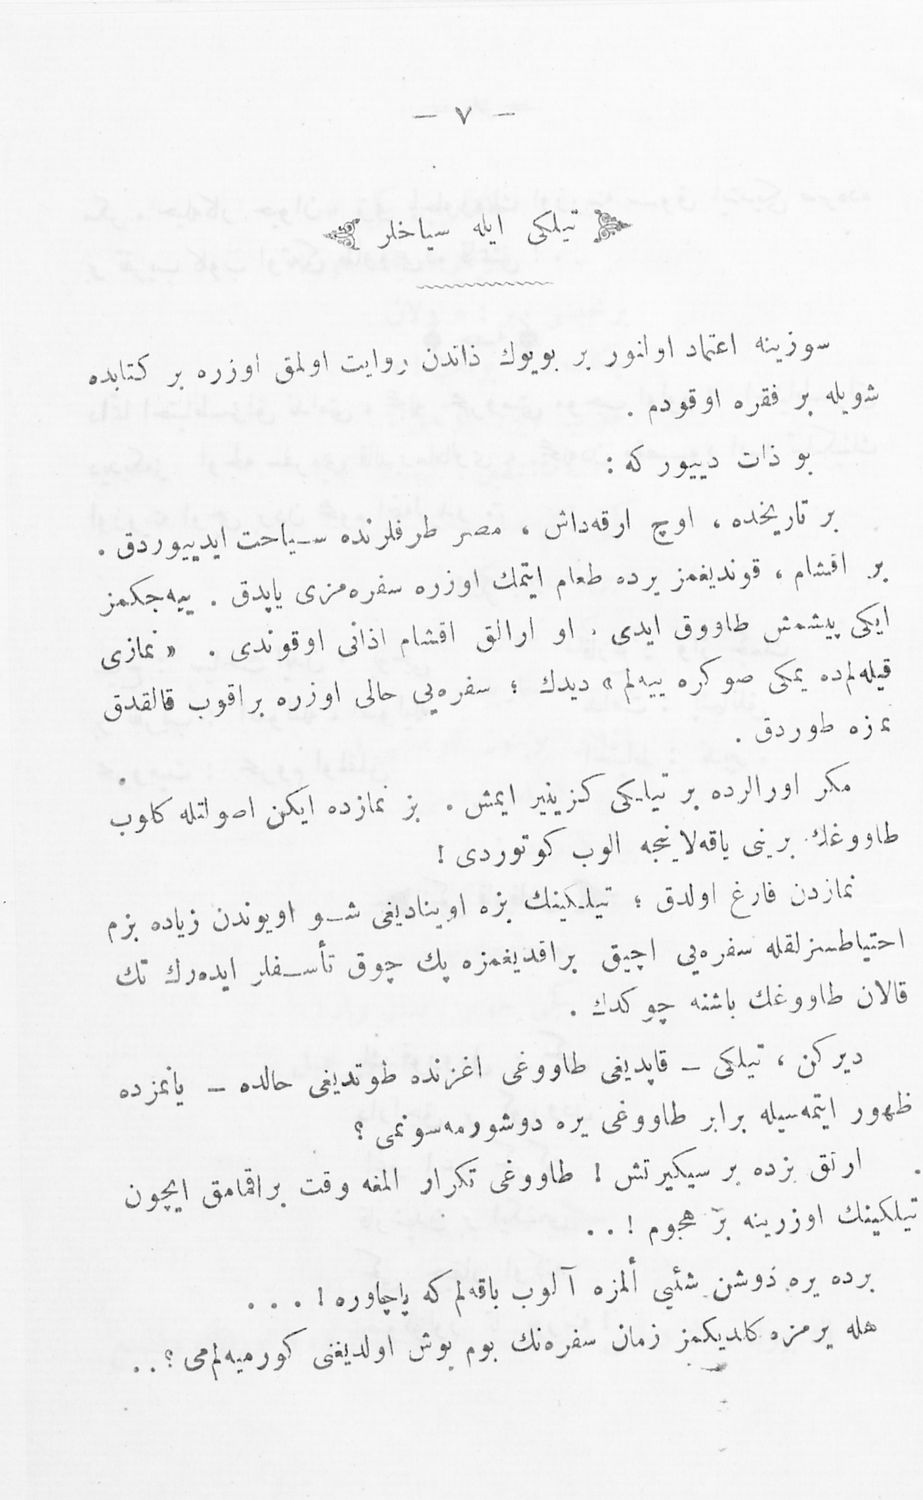 — ٧ —
تیلكی ایله سیاخلر
سوزینه اعتماد اولنور بر بویوك ذاتدن روایت اولمق اوزره بر كتابده
شویله بر فقره اوقودم .
بو ذات دییور كه :
بر تاریخده ، اوچ ارقه‌داش ، مصر طرفلرنده سیاحت ایدییوردق .
بر اقشام ، قوندیغمز یرده طعام ایتمك اوزره سفره‌مزی یاپدق . ییه‌جكمز
ایكی پیشمش طاووق ایدی . او ارالق اقشام اذانی اوقوندی . « نمازی
قیله‌لم‌ده یمكی صوكره ییه‌لم » دیدك ؛ سفره‌یی حالی اوزره براقوب قالقدق
نمزه طوردق .
مكر اورالرده بر تیلكی كزینیر ایمش . بز نمازده ایكن اصولتله كلوب
طاووغك برینی یاقه‌لاینجه الوب كوتوردی !
نمازدن فارغ اولدق ؛ تیلكینك بزه اوینادیغی شو اویوندن زیاده بزم
احتیاطسزلقله سفره‌یی اچیق براقدیغمزه پك چوق تأسفلر ایده‌رك تك
قالان طاووغك باشنه چوكدك .
دیركن ، تیلكی — قاپدیغی طاووغی اغزنده طوتدیغی حالده — یانمزده
ظهور ایتمه‌سیله برابر طاووغی یره دوشورمه‌سونمی ؟
ارتق بزده بر سیكیرتش ! طاووغی تكرار المغه وقت براقمامق ایچون
تیلكینك اوزرینه بر هجوم ! . .
برده یره دوشن شیئی ألمزه آلوب باقه‌لم كه پاچاوره ! . . .
هله یرمزه كلدیكمز زمان سفره‌نك بوم بوش اولدیغنی كورمیه‌لم‌می ؟ . .